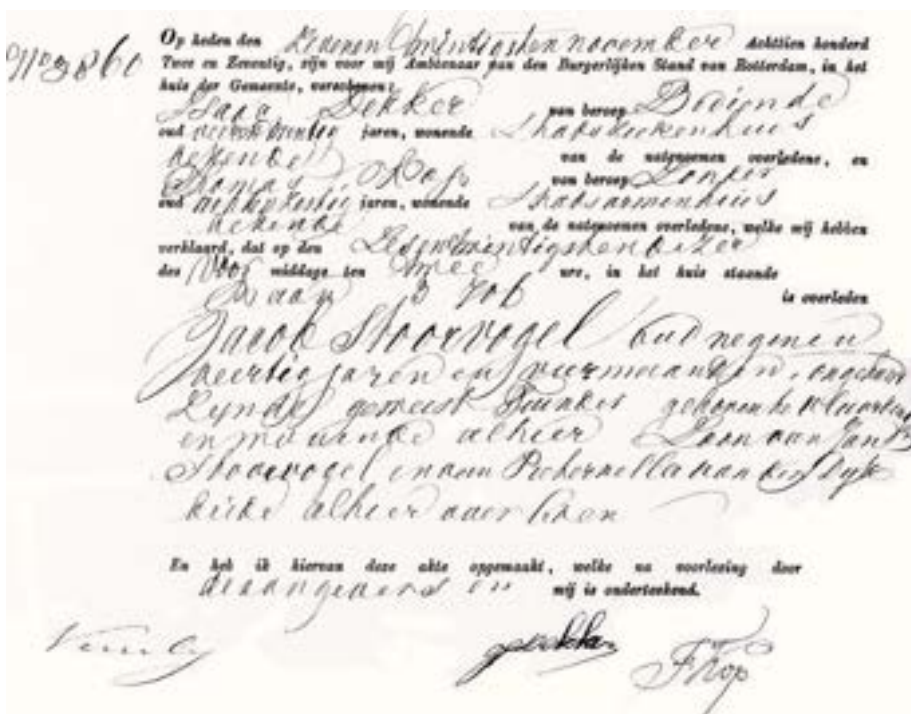 No 3860 Op heden den Zevenentwintigsten november Achttien honderd
Twee en Zeventig, zijn voor mij Ambtenaar van den Burgerlijken Stand van Rotterdam, in het
huis der Gemeente, verschenen:
Isaac Dekker van beroep Bediende
oud jaren, wonende Stadsziekenhuis
bekende van de natenoemen overledene, en
Thomas Kop van beroep
oud jaren, wonende Stadsarmenhuis
bekende van de natenoemen overledene, welke mij hebben
verklaard, dat op den Zesentwintigsten dezer
des Voor middags ten twee ure, in het huis staande
is overleden
Jacob Stoorvogel oud negen en
veertig jaren en vier maanden, ongehuwd
Zijnde geweest geboren te
en wonende alhier Zoon van Jan
Stoorvogel en van Pieternella van den Dijk
beide alhier overleden
En heb ik hiervan deze akte opgemaakt, welke na voorlezing door
de aangevers en mij is onderteekend.
Dekker
TKop